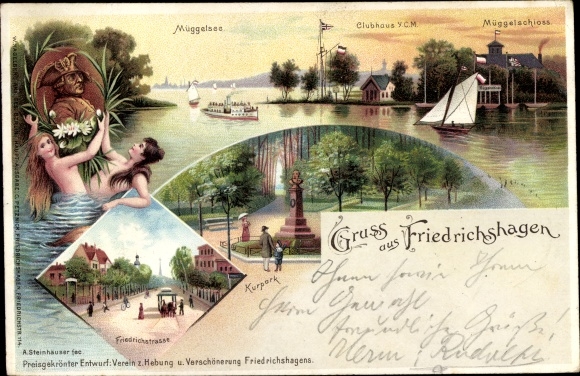 Müggelsee
Clubhaus Y.C.M.
Müggelschloss
Gruss
aus Friedrichshagen
Kurpark
Friedrichstrasse
A. Steinhäuser fec.
Preisgekrönter Entwurf: Verein z. Hebung u. Verschönerung Friedrichshagens.
Ihnen sowie Ihrem
Herrn Gemahl
freundliche Grüße!
Herm. Rudolph